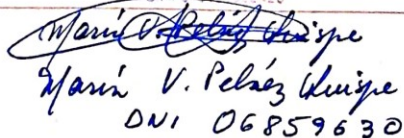 María V. Peláez Quispe
María V. Peláez Quispe
DNI 06859630